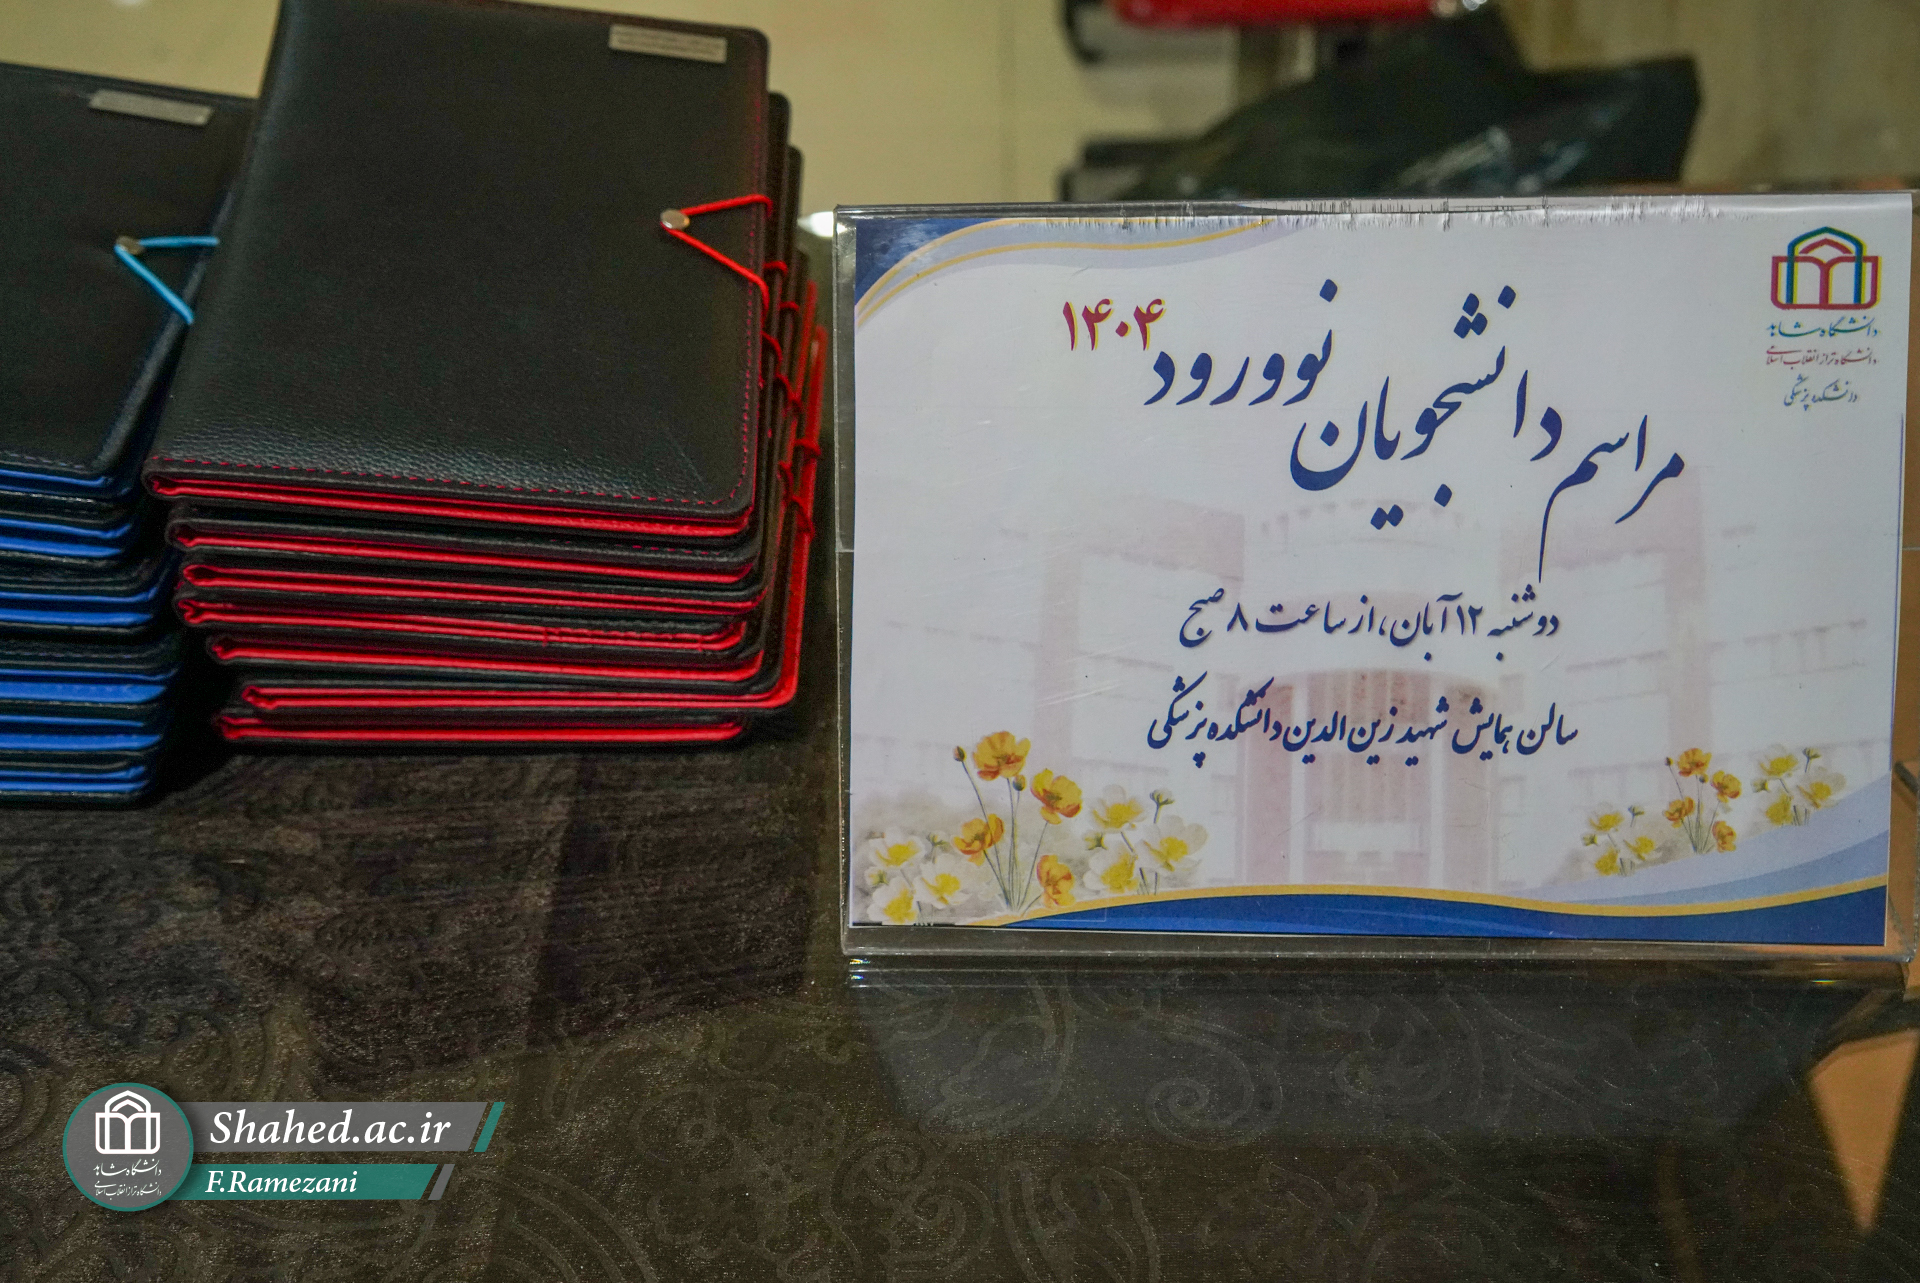 دانشگاه شاهد
دانشگاه تراز انقلاب اسلامی
دانشکده پزشکی
مراسم دانشجویان نوورود ۱۴۰۴
دوشنبه ۱۲ آبان، از ساعت ۸ صبح
سالن همایش شهید زین الدین دانشکده پزشکی
Shahed.ac.ir
F.Ramezani
دانشگاه شاهد
دانشگاه تراز انقلاب اسلامی